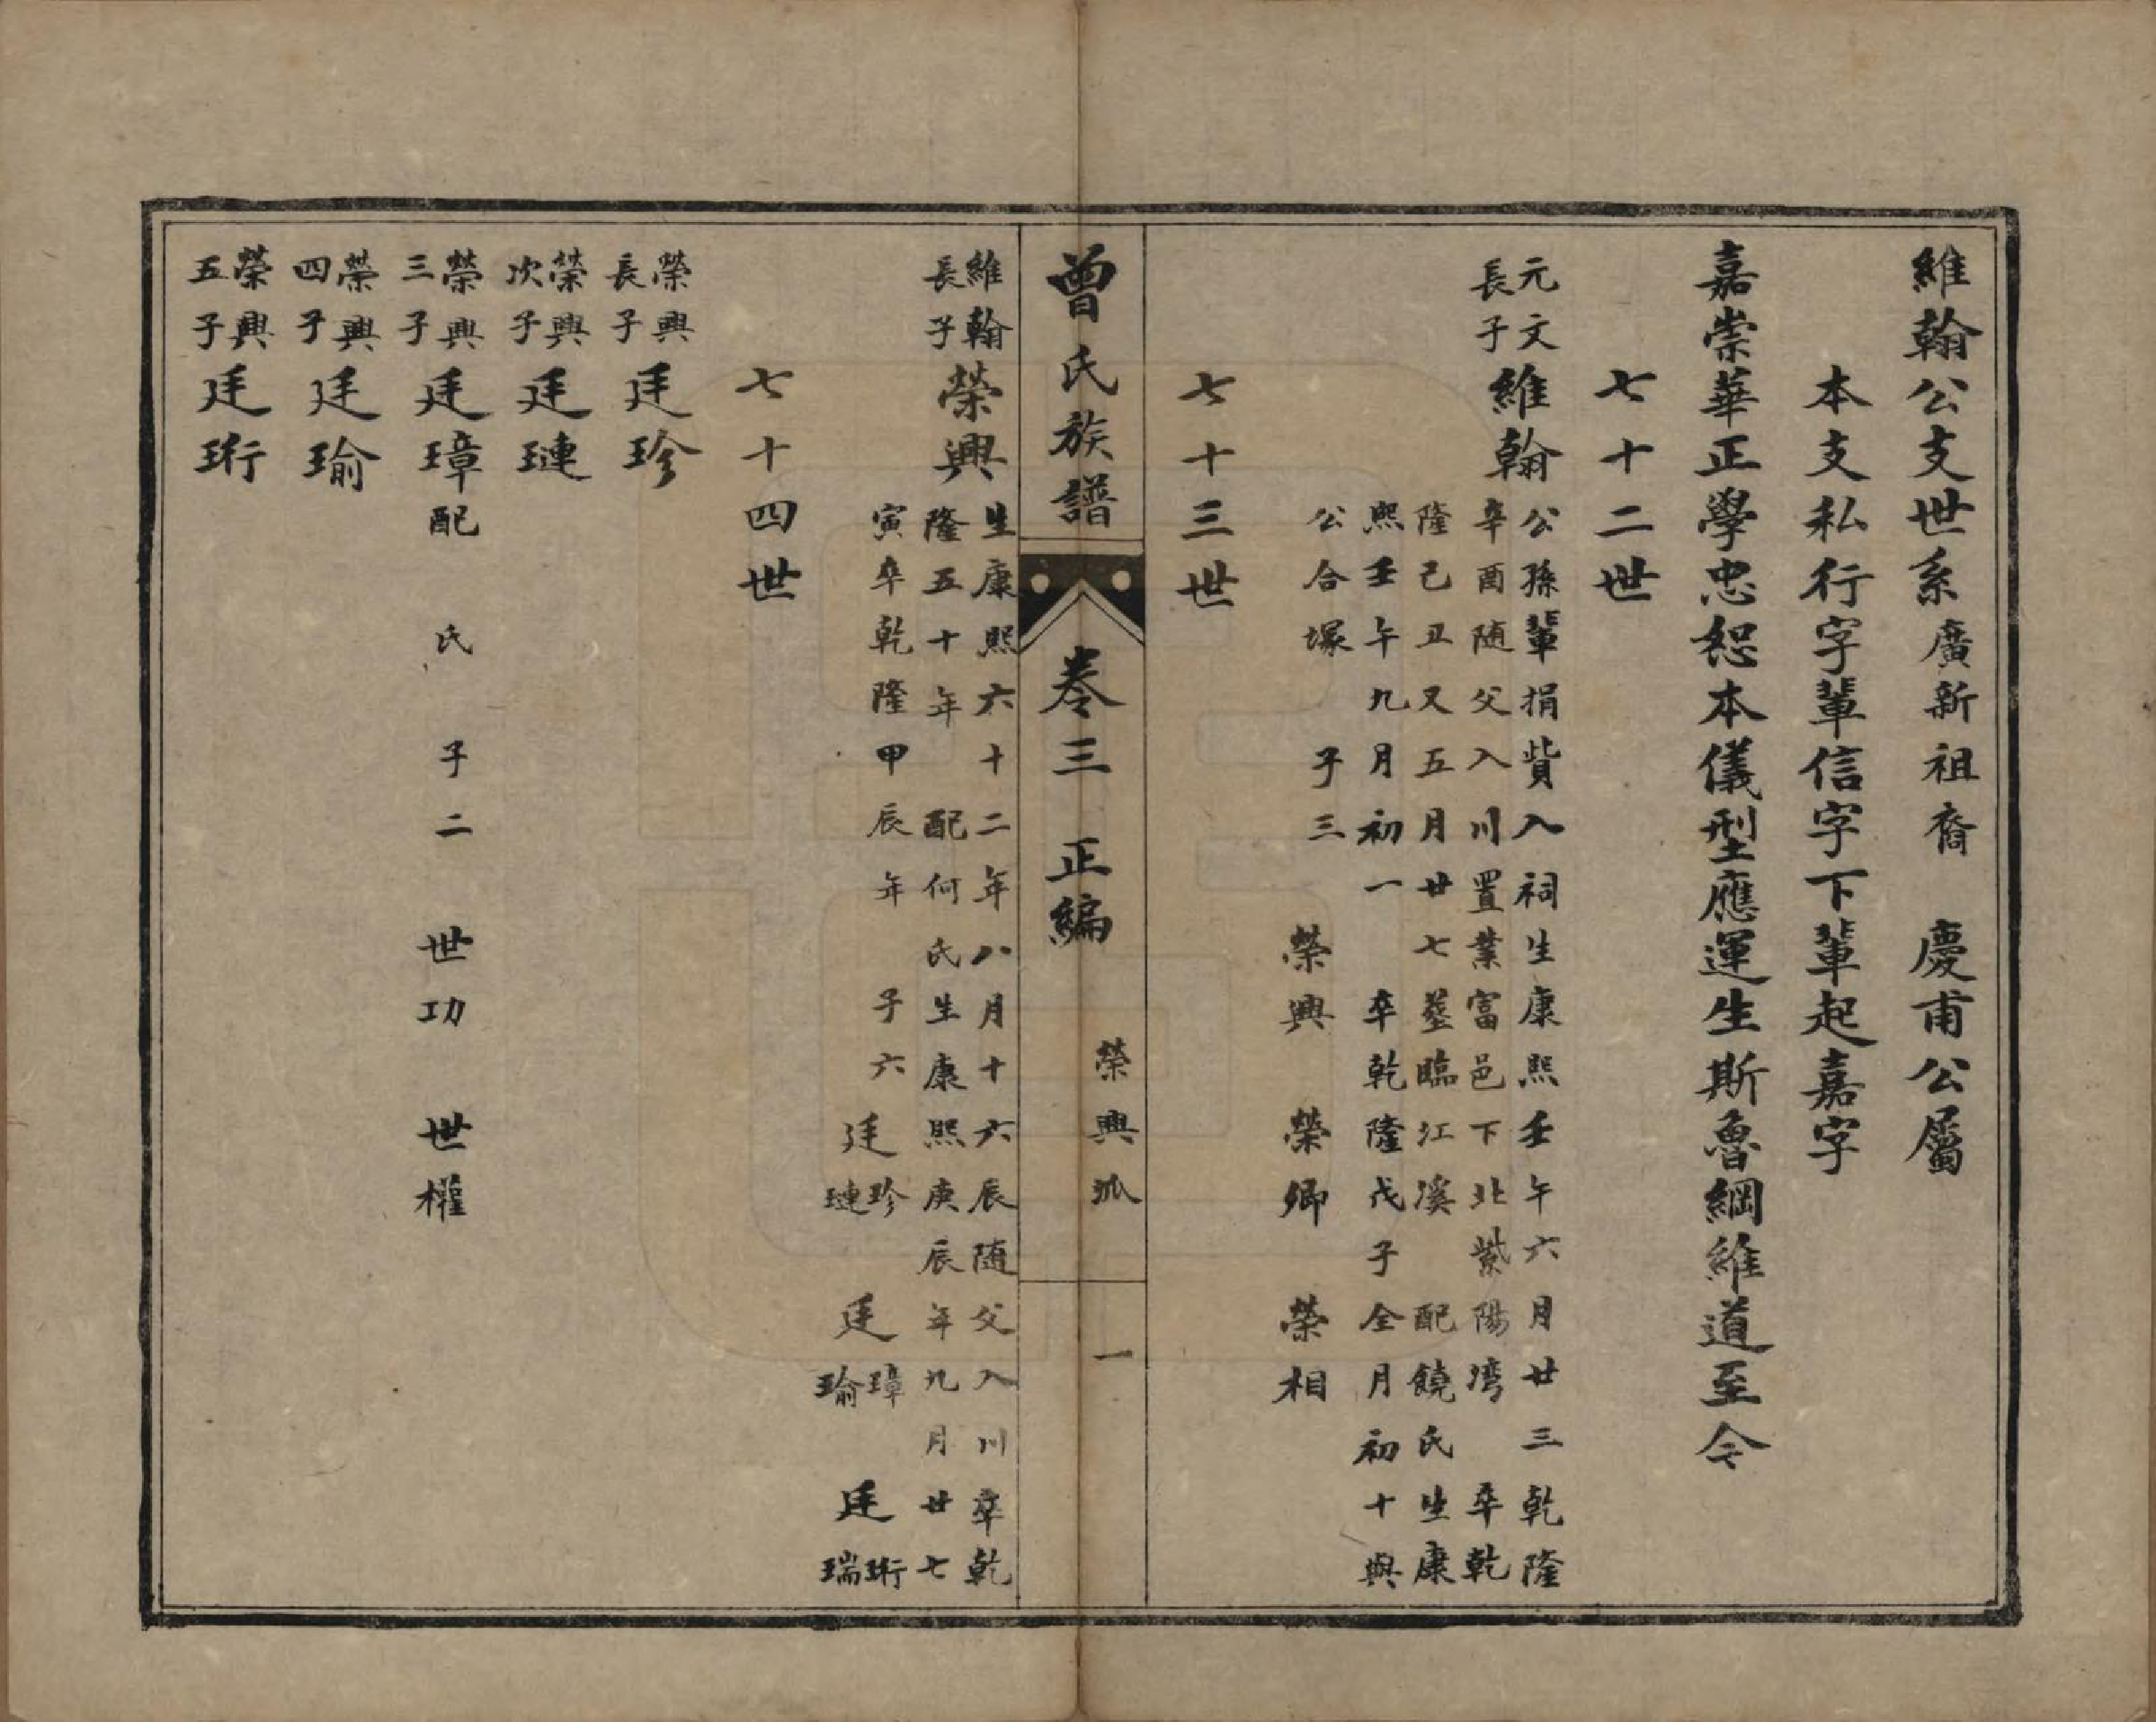 維翰公支世系廣新祖裔 慶甫公屬
本支私行字輩信字下輩起嘉字
嘉崇華正學忠恕本儀型應運生斯魯綱維道至今
七十二世
元文
長子
維翰
公孫輩捐貲入祠生康熙壬午六月廿三乾隆
辛酉随父入川置業富邑下北紫陽灣 卒乾
隆己丑又五月廿七塟臨江溪 配饒氏生康
熙壬午九月初一 卒乾隆戊子全月初十與
公合塚 子三 榮興 榮卿 榮相
七十三世
曾氏族譜 卷三 正編 榮興派 一
維翰
長子
榮興
生康熙六十二年八月十六辰随父入川卒乾
隆五十年 配何氏生康熙庚辰年九月廿七
寅卒乾隆甲辰年 子六 廷珍 廷璋 廷珩
璉 瑜 瑞
七十四世
榮興
長子
廷珍
榮興
次子
廷璉
榮興
三子
廷璋
配 氏 子二 世功 世權
榮興
四子
廷瑜
榮興
五子
廷珩